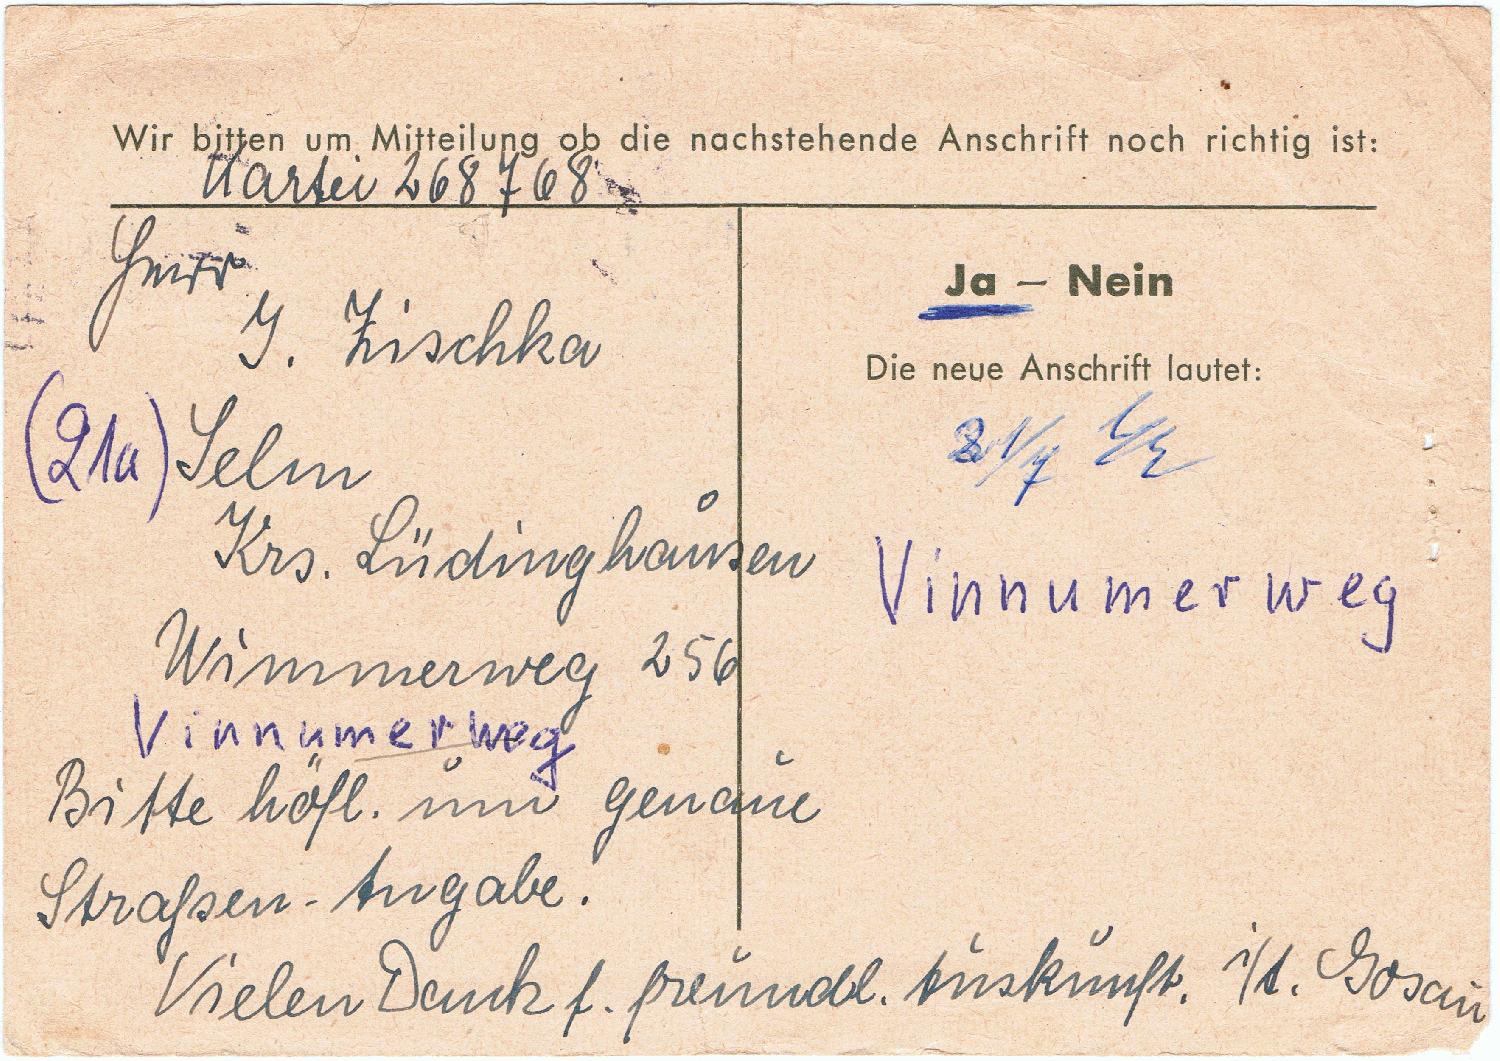 Wir bitten um Mitteilung ob die nachstehende Anschrift noch richtig ist:
Kartei 268768
Herr
J. Zischka
(21a) Selm
Krs. Lüdinghausen
Wimmerweg 256
Vinnumerweg
Bitte höfl. um genaue
Straßen-Angabe.
Vielen Dank f. freundl. Auskunft. i/A. Gosau
Ja – Nein
Die neue Anschrift lautet:
21/7
Vinnumerweg